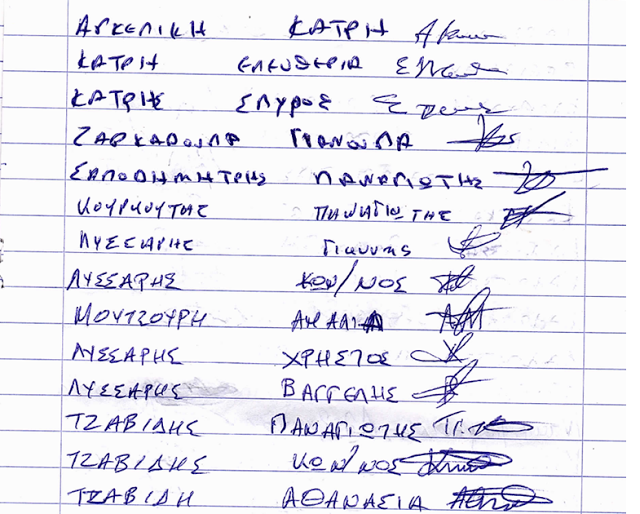 ΑΓΓΕΛΙΚΗ ΚΑΤΡΗ
ΚΑΤΡΗ ΕΛΕΥΘΕΡΙΑ
ΚΑΤΡΗΣ ΣΠΥΡΟΣ
ΖΑΡΚΑΔΟΥΛΑ ΓΙΑΝΟΥΛΑ
ΣΑΠΟΔΗΜΗΤΡΗΣ ΠΑΝΑΓΙΩΤΗΣ
ΚΟΥΡΚΟΥΤΑΣ ΠΑΝΑΓΙΩΤΗΣ
ΛΥΣΣΑΡΗΣ Γιαννης
ΛΥΣΣΑΡΗΣ ΚΩΝ/ΝΟΣ
ΜΟΥΤΖΟΥΡΗ ΑΜΑΛΙΑ
ΛΥΣΣΑΡΗΣ ΧΡΗΣΤΟΣ
ΛΥΣΣΑΡΗΣ ΒΑΓΓΕΛΗΣ
ΤΖΑΒΙΔΗΣ ΠΑΝΑΓΙΩΤΗΣ
ΤΖΑΒΙΔΗΣ ΚΩΝ/ΝΟΣ
ΤΖΑΒΙΔΗ ΑΘΑΝΑΣΙΑ